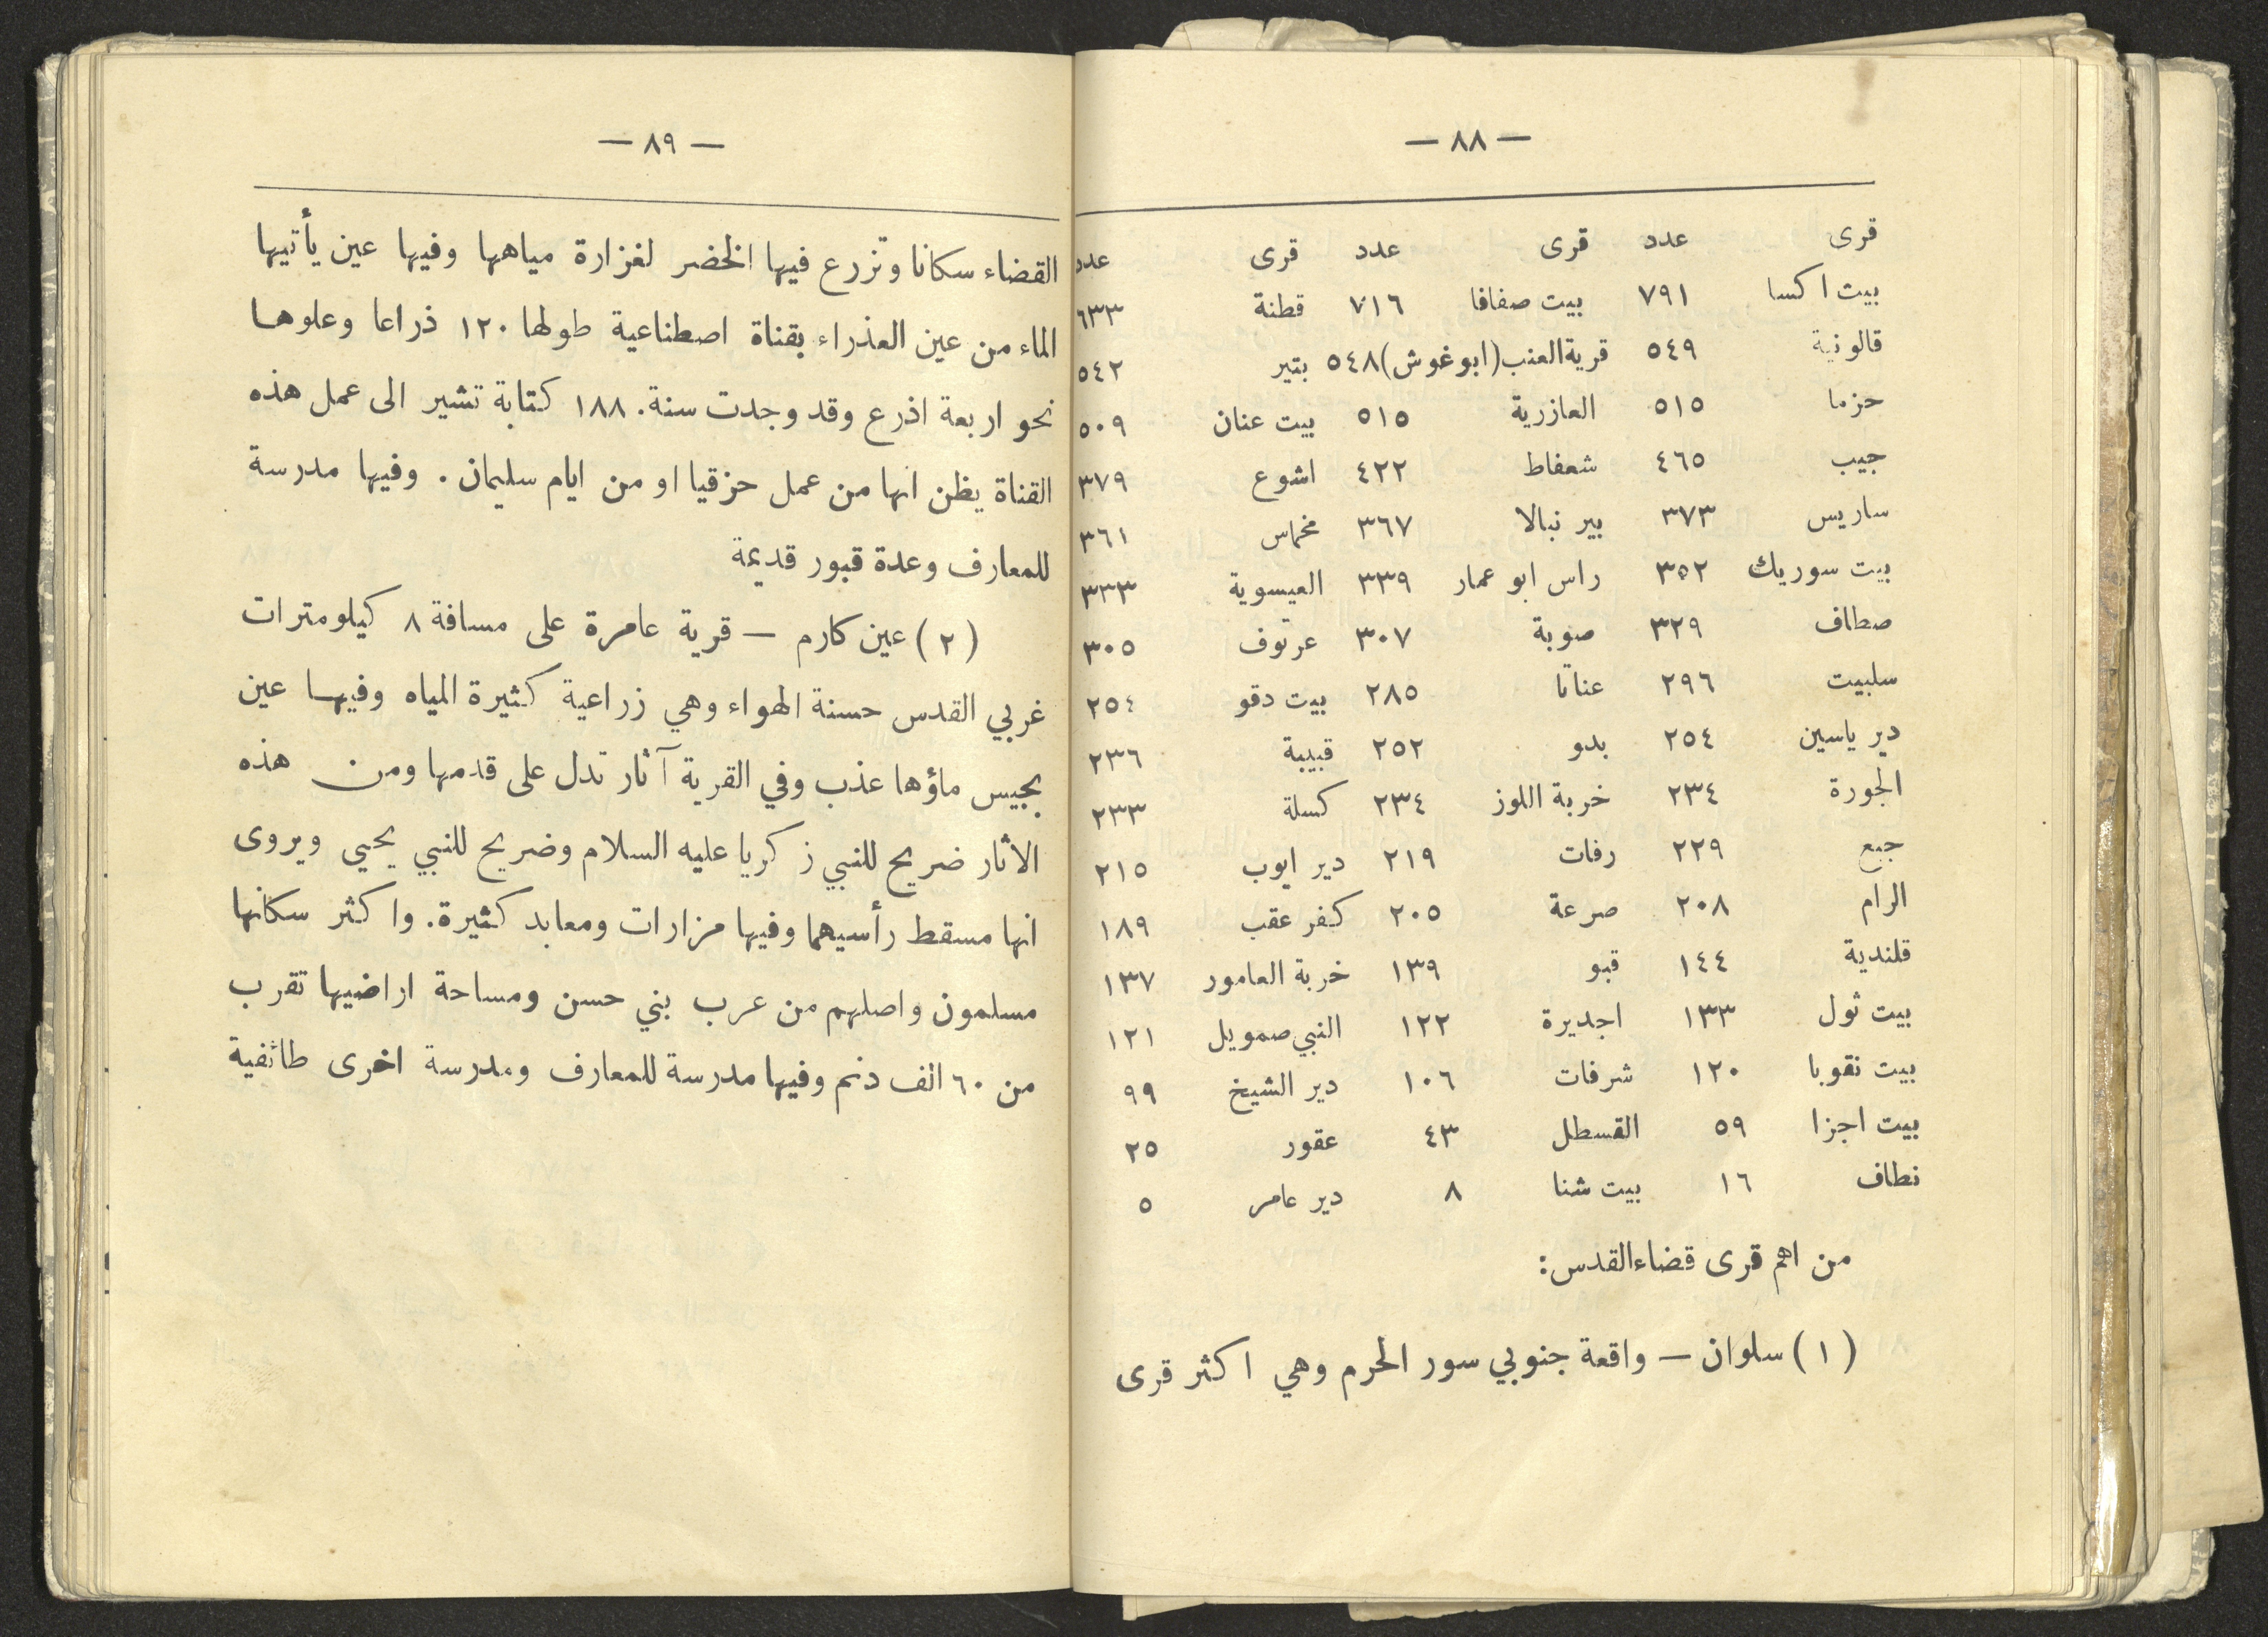 — ٨٨ —
قرى عدد قرى عدد قرى عدد
بيت اكسا ٧٩١ بيت صفافا ٧١٦ قطنة ٦٣٣
قالونية ٥٤٩ قرية العنب (ابو غوش) ٥٤٨ بتير ٥٤٢
حزما ٥١٥ العازرية ٥١٥ بيت عنان ٥٠٩
جيب ٤٦٥ شعفاط ٤٢٢ اشوع ٣٧٩
ساريس ٣٧٣ بير نبالا ٣٦٧ مخماس ٣٦١
بيت سوريك ٣٥٢ راس ابو عمار ٣٣٩ العيسوية ٣٣٣
صطاف ٣٢٩ صوبة ٣٠٧ عرتوف ٣٠٥
سلبيت ٢٩٦ عناتا ٢٨٥ بيت دقو ٢٥٤
دير ياسين ٢٥٤ بدو ٢٥٢ قبيبة ٢٣٦
الجورة ٢٣٤ خربة اللوز ٢٣٤ كسلة ٢٣٣
جبع ٢٢٩ رفات ٢١٩ دير ايوب ٢١٥
الرام ٢٠٨ صرعة ٢٠٥ كفر عقب ١٨٩
قلندية ١٤٤ قبو ١٣٩ خربة العامور ١٣٧
بيت ثول ١٣٣ اجديرة ١٢٢ النبي صمويل ١٢١
بيت نقوبا ١٢٠ شرفات ١٠٦ دير الشيخ ٩٩
بيت اجزا ٥٩ القسطل ٤٣ عقور ٢٥
نطاف ١٦ بيت شنا ٨ دير عامر ٥
من اهم قرى قضاء القدس:
(١) سلوان — واقعة جنوبي سور الحرم وهي اكثر قرى
— ٨٩ —
القضاء سكانا وتزرع فيها الخضر لغزارة مياهها وفيها عين يأتيها
الماء من عين العذراء بقناة اصطناعية طولها ١٢٠ ذراعا وعلوها
نحو اربعة اذرع وقد وجدت سنة ١٨٨٠ كتابة تشير الى عمل هذه
القناة يظن انها من عمل حزقيا او من ايام سليمان . وفيها مدرسة
للمعارف وعدة قبور قديمة
(٢) عين كارم — قرية عامرة على مسافة ٨ كيلومترات
غربي القدس حسنة الهواء وهي زراعية كثيرة المياه وفيها عين
بجيس ماؤها عذب وفي القرية آثار تدل على قدمها ومن هذه
الاثار ضريح للنبي زكريا عليه السلام وضريح للنبي يحيى ويروى
انها مسقط رأسيهما وفيها مزارات ومعابد كثيرة. واكثر سكانها
مسلمون واصلهم من عرب بني حسن ومساحة اراضيها تقرب
من ٦٠ الف دنم وفيها مدرسة للمعارف ومدرسة اخرى طائفية